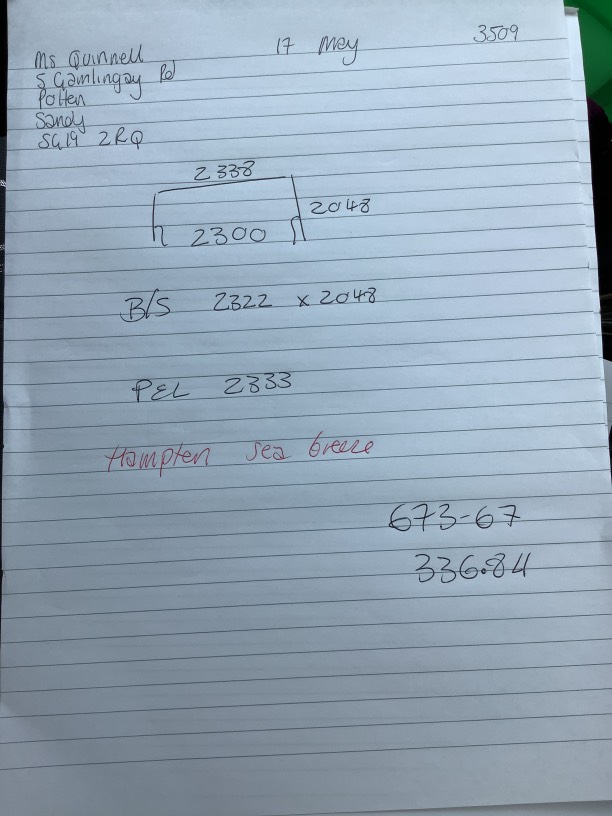 Ms Quinnell 17 May 3509
5 Gamlingay Rd
Potten
Sandy
SG19 2RQ
2338
2048
2300
B/S 2322 x 2048
PEL 2333
Hampten sea breeze
673-67
336.84